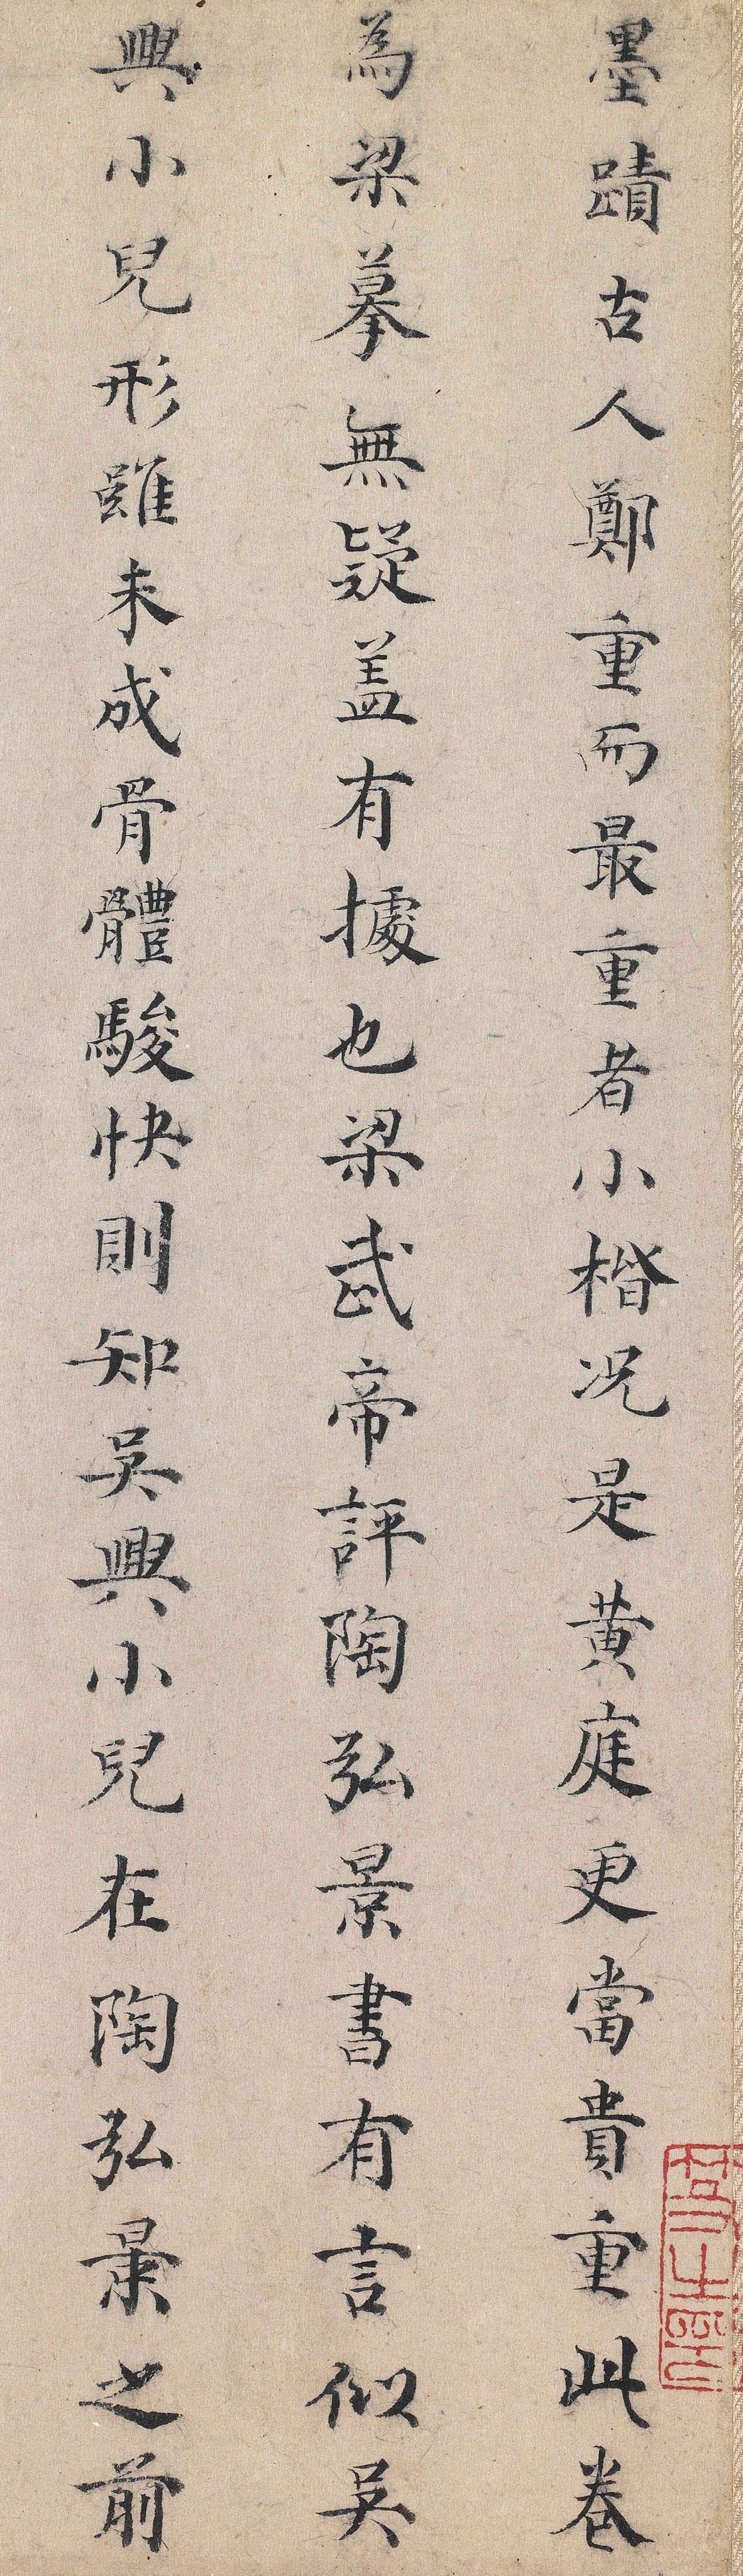 墨蹟古人鄭重而最重者小楷况是黄庭更當貴重此卷
為梁摹無疑盖有據也梁武帝評陶弘景書有言似吳
興小兒形雖未成骨體駿快則知吳興小兒在陶弘景之前